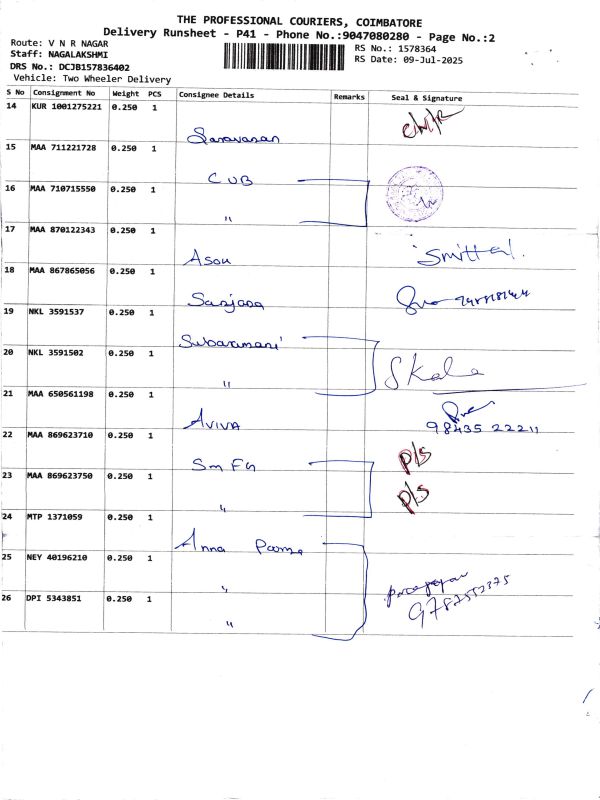 THE PROFESSIONAL COURIERS, COIMBATORE
Delivery Runsheet - P41 - Phone No.:9047080280 - Page No.:2
Route: V N R NAGAR
Staff: NAGALAKSHMI
DRS No.: DCJB157836402
Vehicle: Two Wheeler Delivery
RS No.: 1578364
RS Date: 09-Jul-2025
S No Consignment No Weight PCS Consignee Details Remarks Seal & Signature
14 KUR 1001275221 0.250 1 Saravanan
15 MAA 711221728 0.250 1 CUB
16 MAA 710715550 0.250 1 "
17 MAA 870122343 0.250 1 Smittal.
18 MAA 867865056 0.250 1
19 NKL 3591537 0.250 1
20 NKL 3591502 0.250 1 " SKala
21 MAA 650561198 0.250 1 AVIVA 98435 22211
22 MAA 869623710 0.250 1 P/S
23 MAA 869623750 0.250 1 " P/S
24 MTP 1371059 0.250 1 Anna
25 NEY 40196210 0.250 1 "
26 DPI 5343851 0.250 1 "